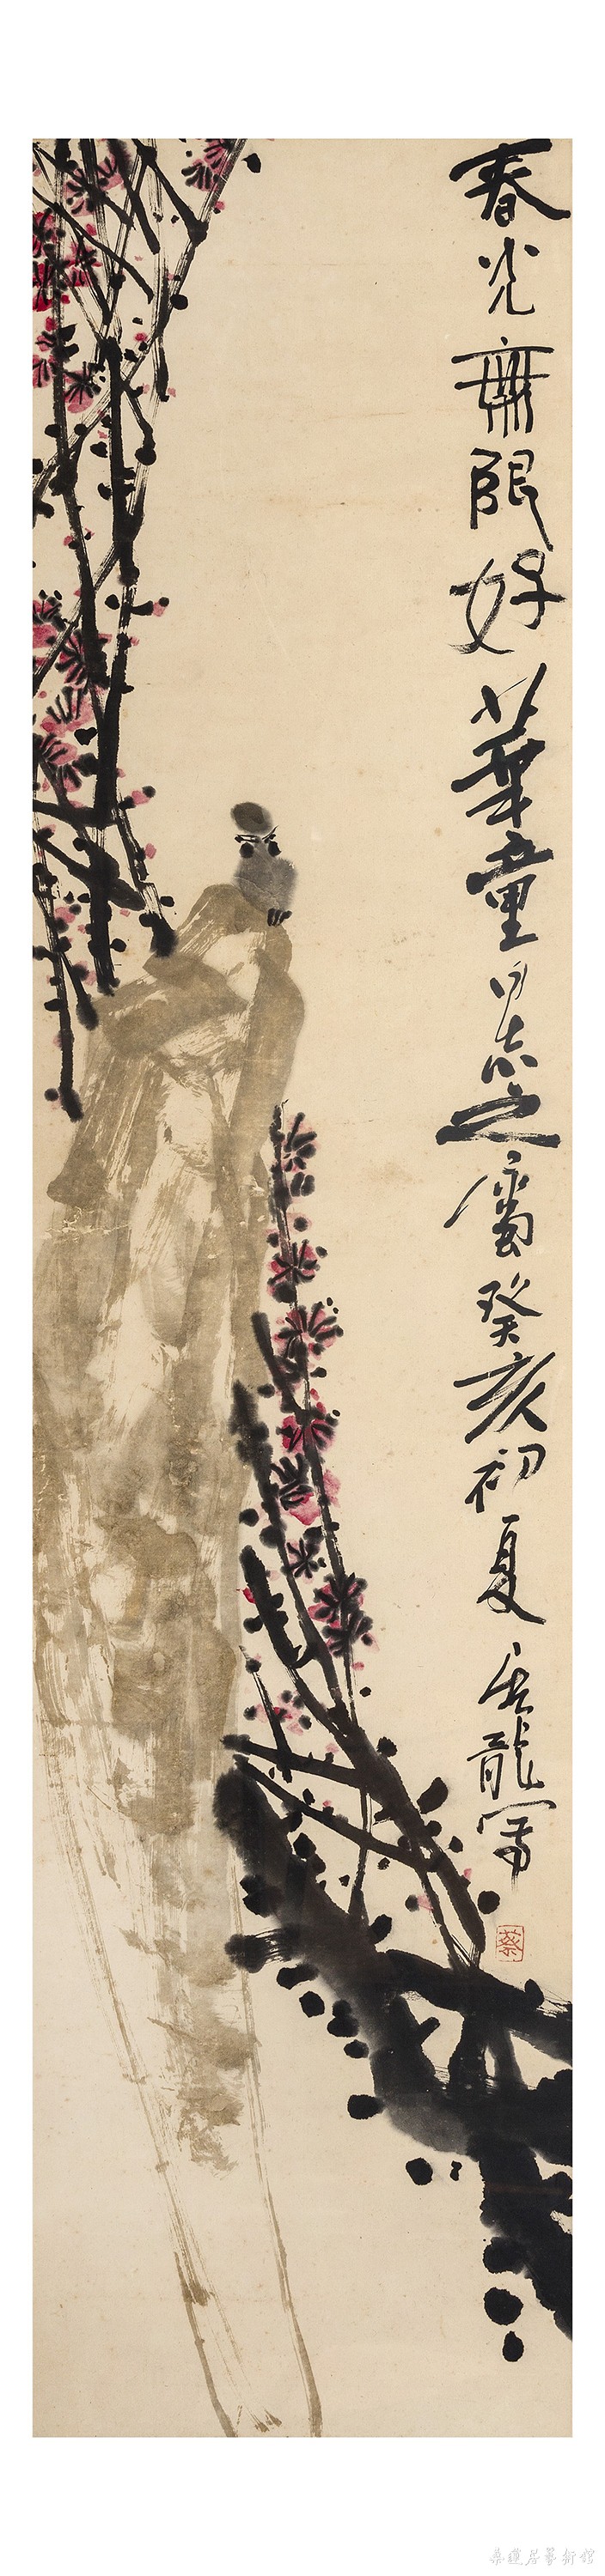 春光無限好華童同志之屬癸亥初夏龍寫
蔡
桑蓮居藝術館